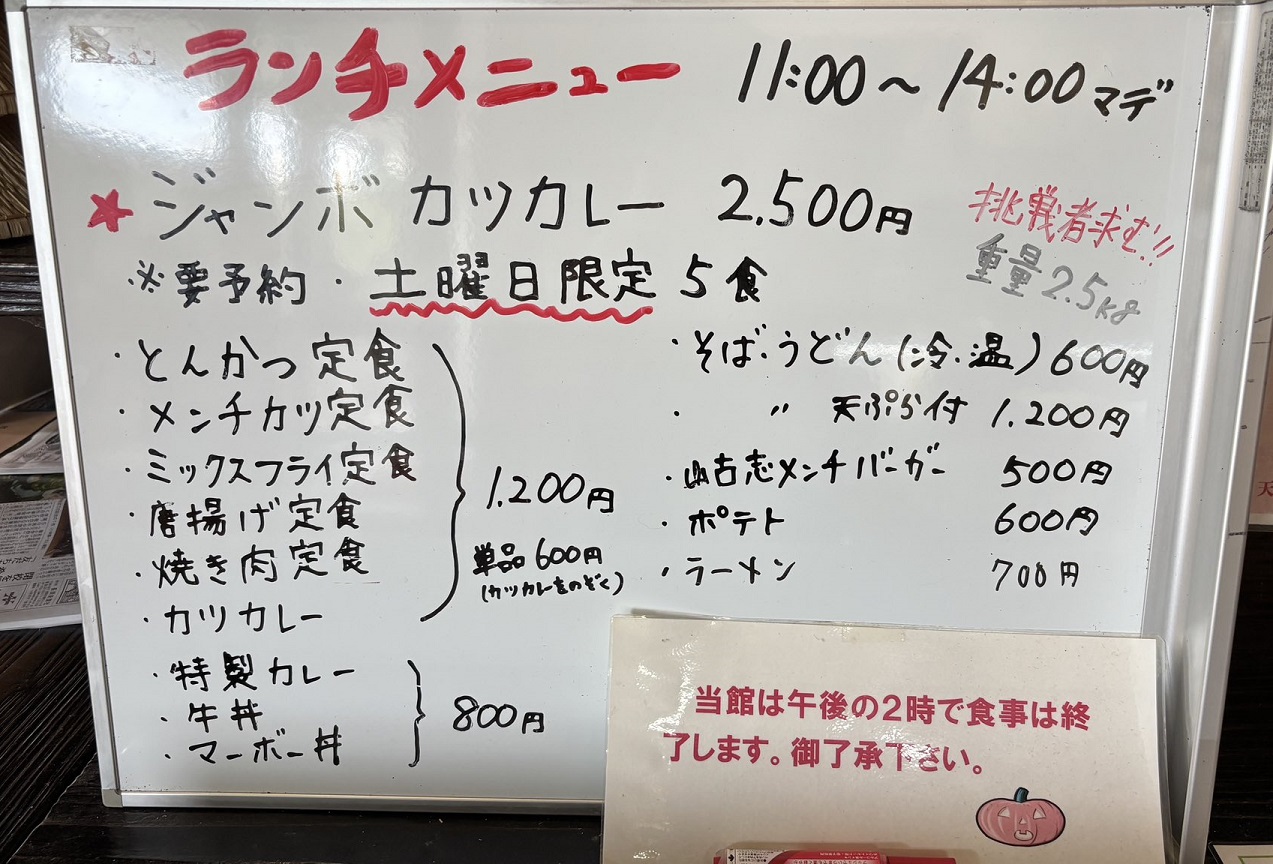 ランチメニュー 11:00～14:00マデ
★ジャンボ カツカレー 2.500円
挑戦者求む!!
重量2.5kg
※要予約・土曜日限定 5食
・とんかつ定食
・メンチカツ定食
・ミックスフライ定食
・唐揚げ定食
・焼き肉定食
・カツカレー
1.200円
単品600円
(カツカレーをのぞく)
・特製カレー
・牛丼
・マーボー丼
800円
・そば・うどん(冷・温)600円
・ 〃 天ぷら付 1.200円
・山古志メンチバーガー 500円
・ポテト 600円
・ラーメン 700円
当館は午後の2時で食事は終
了します。御了承下さい。